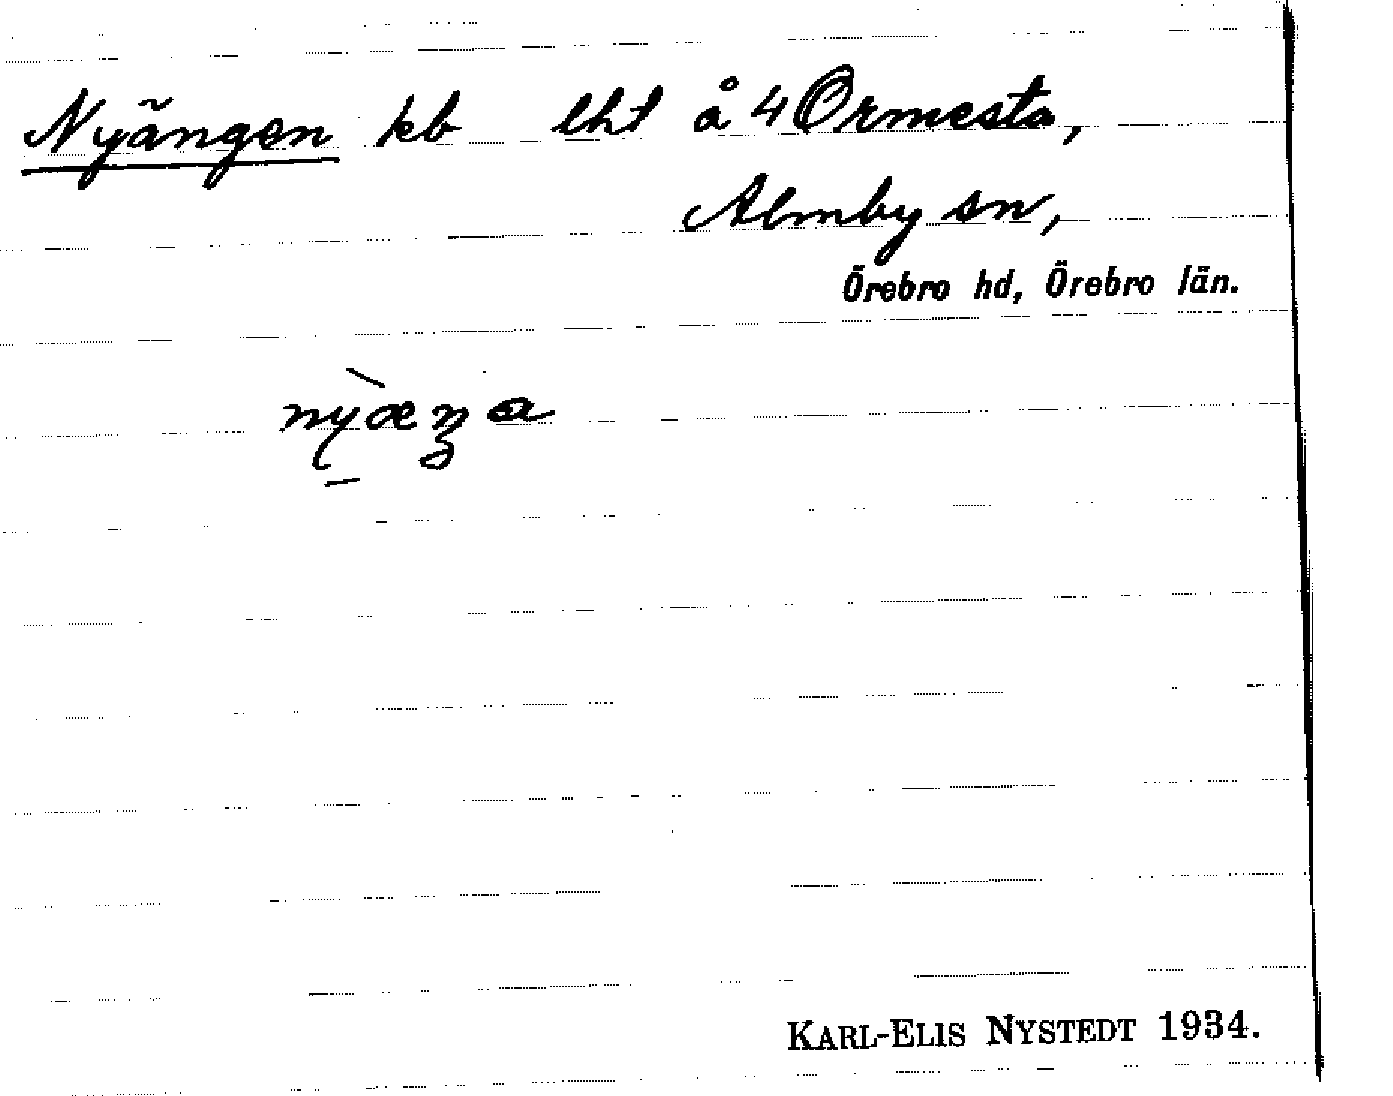 Nyängen kb lht å 4 Ormesta,
Almby sn,
Örebro hd, Örebro län.
nỳæŋa
KARL-ELIS NYSTEDT 1934.